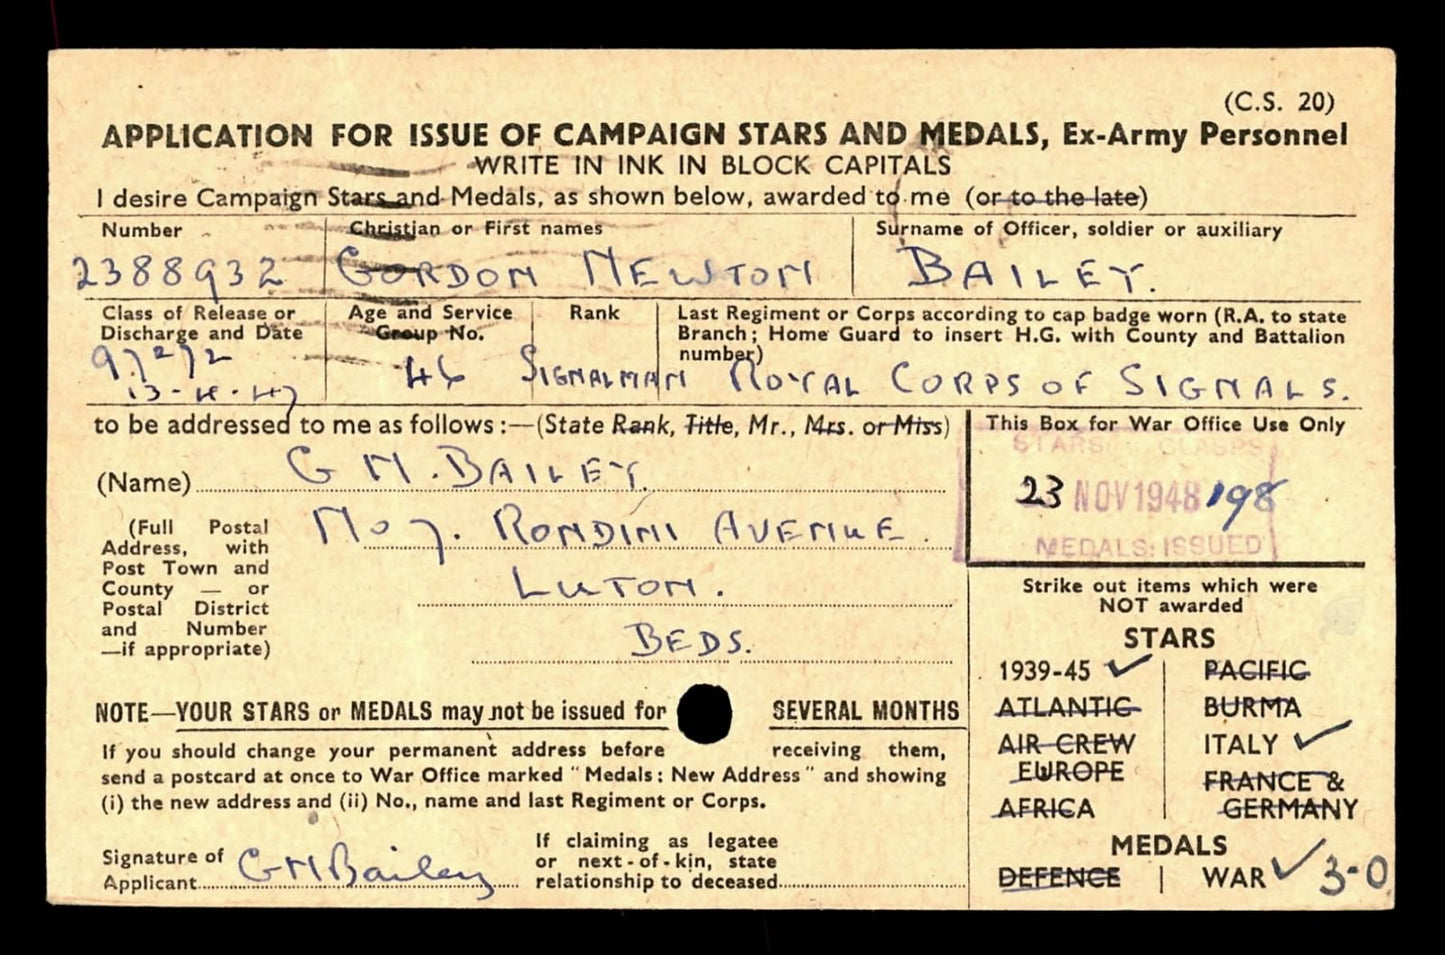 (C.S. 20)
APPLICATION FOR ISSUE OF CAMPAIGN STARS AND MEDALS, Ex-Army Personnel
WRITE IN INK IN BLOCK CAPITALS
I desire Campaign Stars and Medals, as shown below, awarded to me (or to the late)
Number
Christian or First names
Surname of Officer, soldier or auxiliary
2388932
GORDON NEWTON
BAILEY.
Class of Release or
Discharge and Date
Age and Service
Group No.
Rank
Last Regiment or Corps according to cap badge worn (R.A. to state
Branch; Home Guard to insert H.G. with County and Battalion
number)
46
SIGNALMAN
ROYAL CORPS OF SIGNALS.
to be addressed to me as follows:—(State Rank, Title, Mr., Mrs. or Miss)
(Name) G N. BAILEY.
(Full Postal
Address, with
Post Town and
County — or
Postal District
and Number
—if appropriate)
No 7. RONDINI AVENUE.
LUTON.
BEDS.
This Box for War Office Use Only
STARS: CLASPS
23 NOV 1948 198
MEDALS: ISSUED
Strike out items which were
NOT awarded
STARS
1939-45 ✓
ATLANTIC
AIR CREW
EUROPE
AFRICA
PACIFIC
BURMA
ITALY ✓
FRANCE &
GERMANY
MEDALS
DEFENCE | WAR ✓ 3-0
NOTE—YOUR STARS or MEDALS may not be issued for SEVERAL MONTHS
If you should change your permanent address before receiving them,
send a postcard at once to War Office marked "Medals: New Address" and showing
(i) the new address and (ii) No., name and last Regiment or Corps.
Signature of
Applicant GNBailey
If claiming as legatee
or next-of-kin, state
relationship to deceased